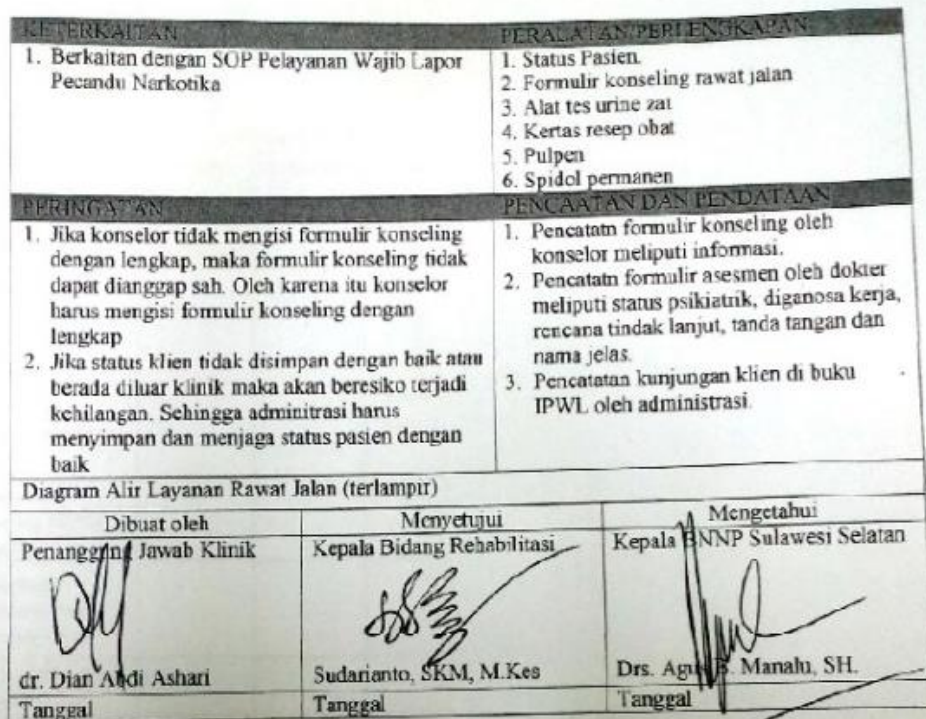 KETERKAITAN
1. Berkaitan dengan SOP Pelayanan Wajib Lapor
Pecandu Narkotika
PERALATAN/PERLENGKAPAN
1. Status Pasien.
2. Formulir konseling rawat jalan
3. Alat tes urine zat
4. Kertas resep obat
5. Pulpen
6. Spidol permanen
PERINGATAN
1. Jika konselor tidak mengisi formulir konseling
dengan lengkap, maka formulir konseling tidak
dapat dianggap sah. Oleh karena itu konselor
harus mengisi formulir konseling dengan
lengkap
2. Jika status klien tidak disimpan dengan baik atau
berada diluar klinik maka akan beresiko terjadi
kehilangan. Sehingga adminitrasi harus
menyimpan dan menjaga status pasien dengan
baik
PENCAATAN DAN PENDATAAN
1. Pencatatn formulir konseling oleh
konselor meliputi informasi.
2. Pencatatn formulir asesmen oleh dokter
meliputi status psikiatrik, diganosa kerja,
rencana tindak lanjut, tanda tangan dan
nama jelas.
3. Pencatatan kunjungan klien di buku
IPWL oleh administrasi.
Diagram Alir Layanan Rawat Jalan (terlampir)
Dibuat oleh
Penanggung Jawab Klinik
dr. Dian Abdi Ashari
Tanggal
Menyetujui
Kepala Bidang Rehabilitasi
Sudarianto, SKM, M.Kes
Tanggal
Mengetahui
Kepala BNNP Sulawesi Selatan
Drs. Agus B. Manalu, SH.
Tanggal